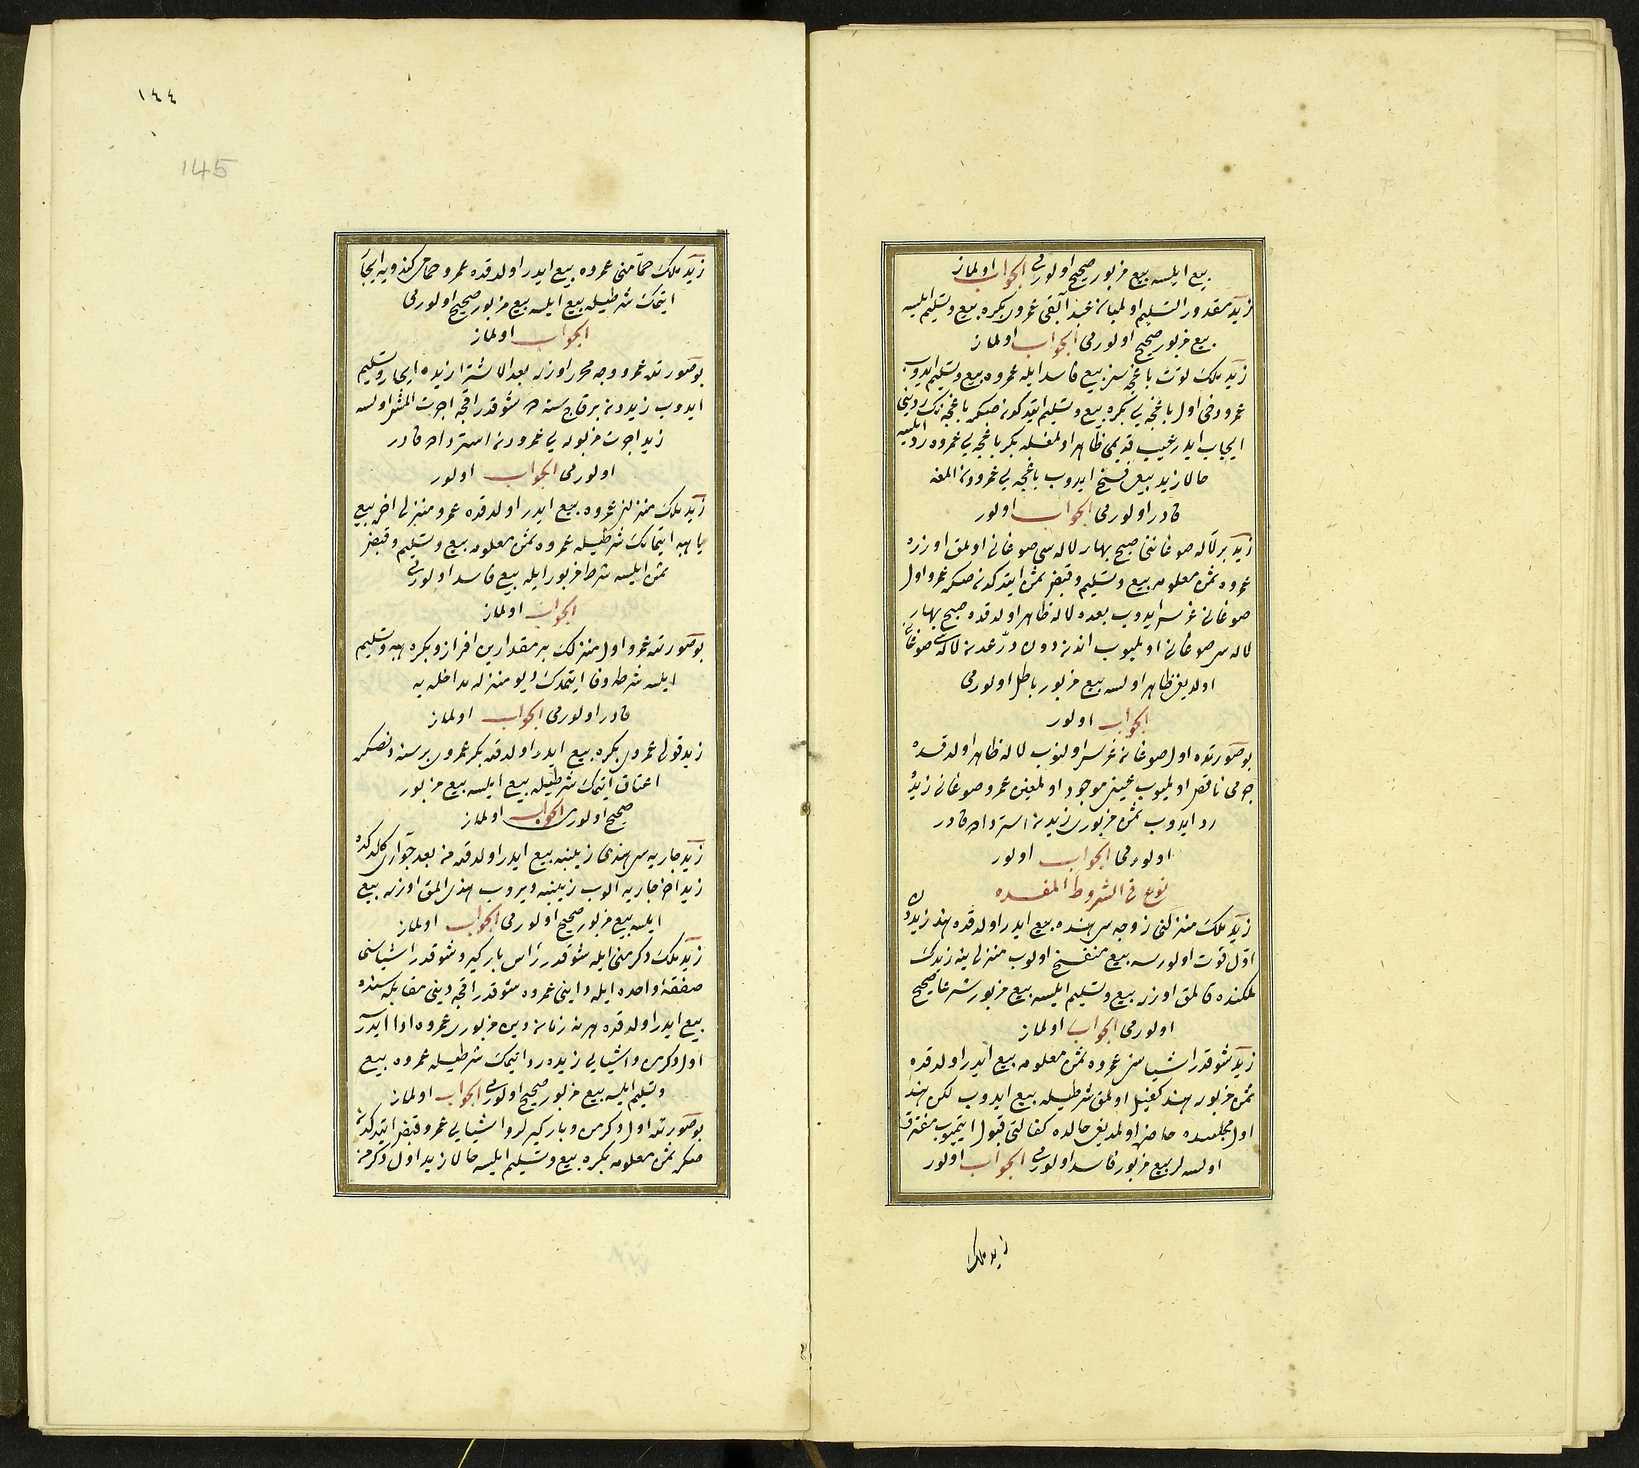 بیع ایلسه بیع مزبور صحیح اولورمی الجواب اولماز
زید مقدور التسلیم اولمیان عبد آبقی عمرو بکره بیع و تسلیم ایلسه
بیع مزبور صحیح اولورمی الجواب اولماز
زید ملک باغچه سن بیع فاسد ایله عمروه بیع و تسلیم ایدوب
عمرو دخی اول باغچه یی بکره بیع و تسلیم ایتدکدنصکره باغچه نک ردینی
ایجاب ایدر عیب قدیمی ظاهر اولمغله بکر باغچه یی عمروه رد ایلسه
حالا زید بیعی فسخ ایدوب باغچه یی عمرودن المغه
قادر اولورمی الجواب اولور
زید بر لاله صوغاننی صبح بهار لاله سی صوغانی اولمق اوزره
عمروه ثمن معلومه بیع و تسلیم و قبض ثمن ایتدکدنصکره عمرو اول
صوغانی غرس ایدوب بعده لاله ظاهر اولدقده صبح بهار
لاله سی صوغانی اولمیوب اندن دون لاله سی صوغانی
اولدیغی ظاهر اولسه بیع مزبور باطل اولورمی
الجواب اولور
بو صورتده اول صوغان غرس اولنوب لاله ظاهر اولدقده
جرمی ناقص اولمیوب عینی موجود اولمغین عمرو صوغانی زیده
رد ایدوب ثمن مزبوری زیدن استرداده قادر
اولورمی الجواب اولور
نوع فی الشروط المفسده
زید ملک منزلنی زوجه سی هنده بیع ایدر اولدقده هند زیددن
اول فوت اولورسه بیع منفسخ اولوب منزل ینه زیدک
ملکنده قالمق اوزره بیع و تسلیم ایلسه بیع مزبور شرعا صحیح
اولورمی الجواب اولماز
زید شوقدر اشیاسنی عمروه ثمن معلومه بیع ایدر اولدقده
ثمن مزبوره هند کفیل اولمق شرطیله بیع ایدوب لکن هند
اول مجلسده حاضر اولمدیغی حالده کفالتی قبول ایتمیوب مفترق
اولسه لر بیع مزبور فاسد اولورمی الجواب اولور
زید ملک
١٤٤
145
زید ملک حمامنی عمروه بیع ایدر اولدقده عمرو حمامی کندویه ایجار
ایتمک شرطیله بیع ایلسه بیع مزبور صحیح اولورمی
الجواب اولماز
بو صورتده عمرو وجه محرر اوزره بعد الاشترا زیده ایجار و تسلیم
ایدوب زیددن بر قاچ سنه ده شوقدر اقچه اجرت المش اولسه
زید اجرت مزبوره یی عمرودن استرداده قادر
اولورمی الجواب اولور
زید ملک منزلنی عمروه بیع ایدر اولدقده عمرو منزلی اخره بیع
یا هبه ایتمامک شرطیله عمروه ثمن معلومه بیع و تسلیم و قبض
ثمن ایلسه شرط مزبور ایله بیع فاسد اولورمی
الجواب اولماز
بو صورتده عمرو اول منزلک بر مقدارین افراز و بکره هبه و تسلیم
ایلسه شرطه وفا ایتمدک دیو منزله مداخله یه
قادر اولورمی الجواب اولماز
زید قولی عمروی بکره بیع ایدر اولدقده بکر عمروی بر سنه دنصکره
اعتاق ایتمک شرطیله بیع ایلسه بیع مزبور
صحیح اولورمی الجواب اولماز
زید جاریه سی هندی زینبه بیع ایدر اولدقده من بعد جواری کلدکده
زید اخر جاریه الوب زینبه ویروب هندی المق اوزره بیع
ایلسه بیع مزبور صحیح اولورمی الجواب اولماز
زید ملک دکرمنی ایله شوقدر رأس بارکیر و شوقدر اشیاسنی
صفقهٔ واحده ایله داینی عمروه شوقدر اقچه دینی مقابله سنده
بیع ایدر اولدقده هر نه زمان دین مزبوری عمروه ادا ایدر
اول دکرمن و اشیایی زیده رد ایتمک شرطیله عمروه بیع
و تسلیم ایلسه بیع مزبور صحیح اولورمی الجواب اولماز
بو صورتده اول دکرمن و بارکیرلر و اشیایی عمرو قبض ایتدکدن
صکره ثمن معلومه بکره بیع و تسلیم ایلسه حالا زید اول دکرمن